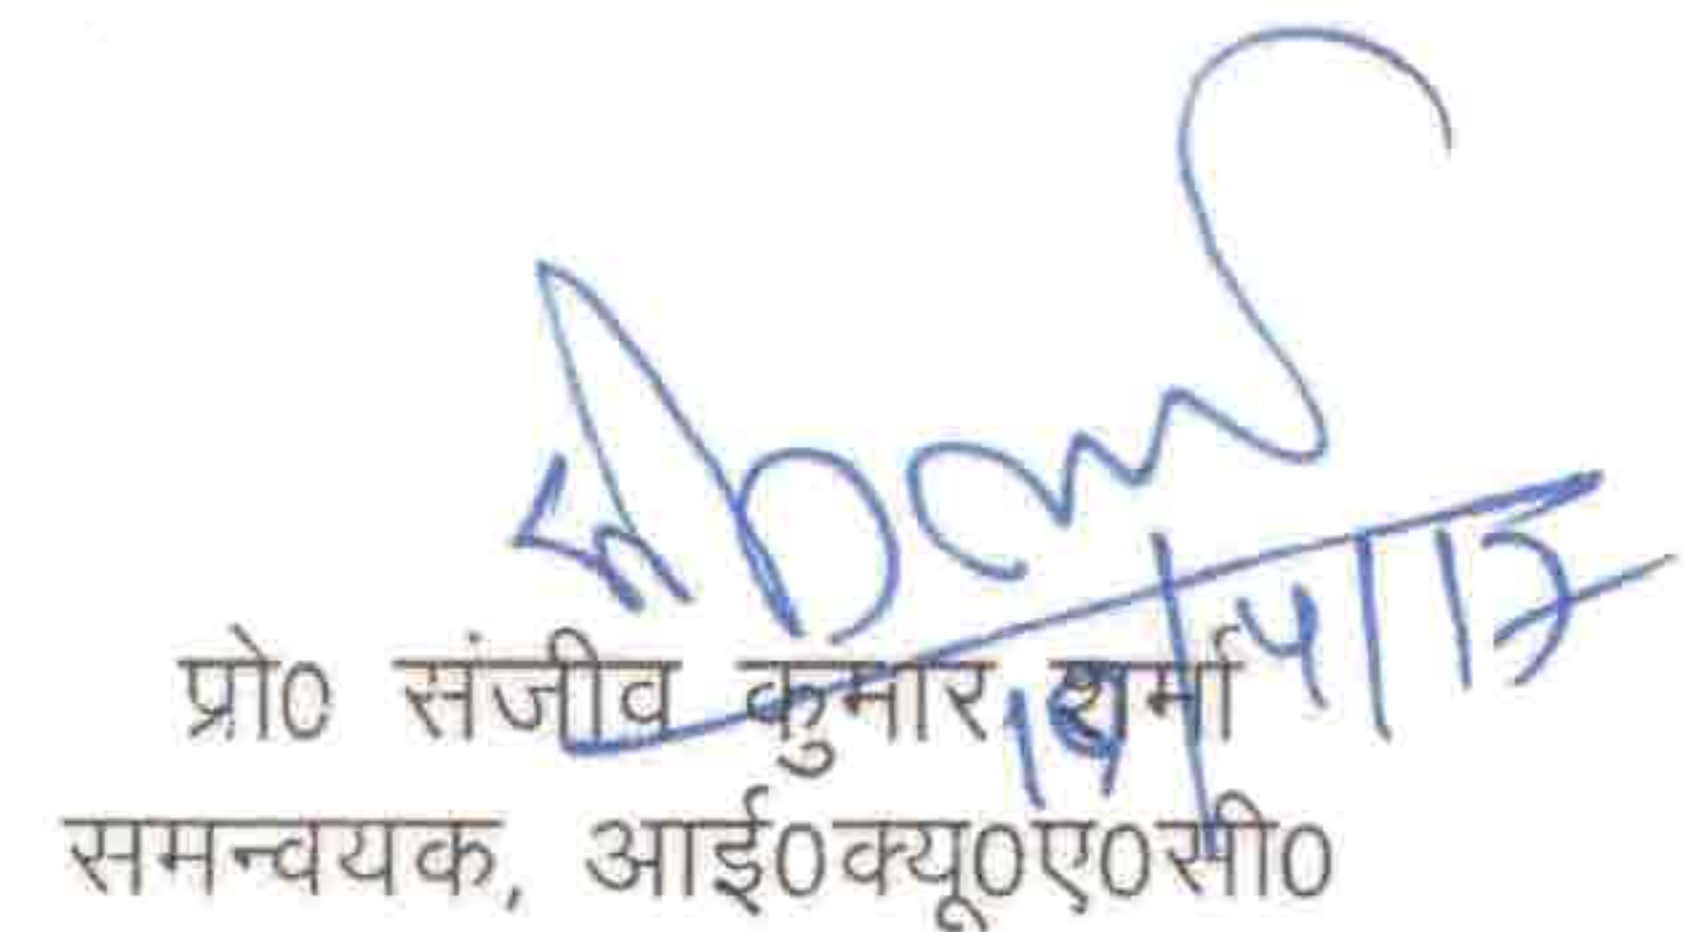 19/4/17
प्रो0 संजीव कुमार शर्मा
समन्वयक, आई0क्यू0ए0सी0